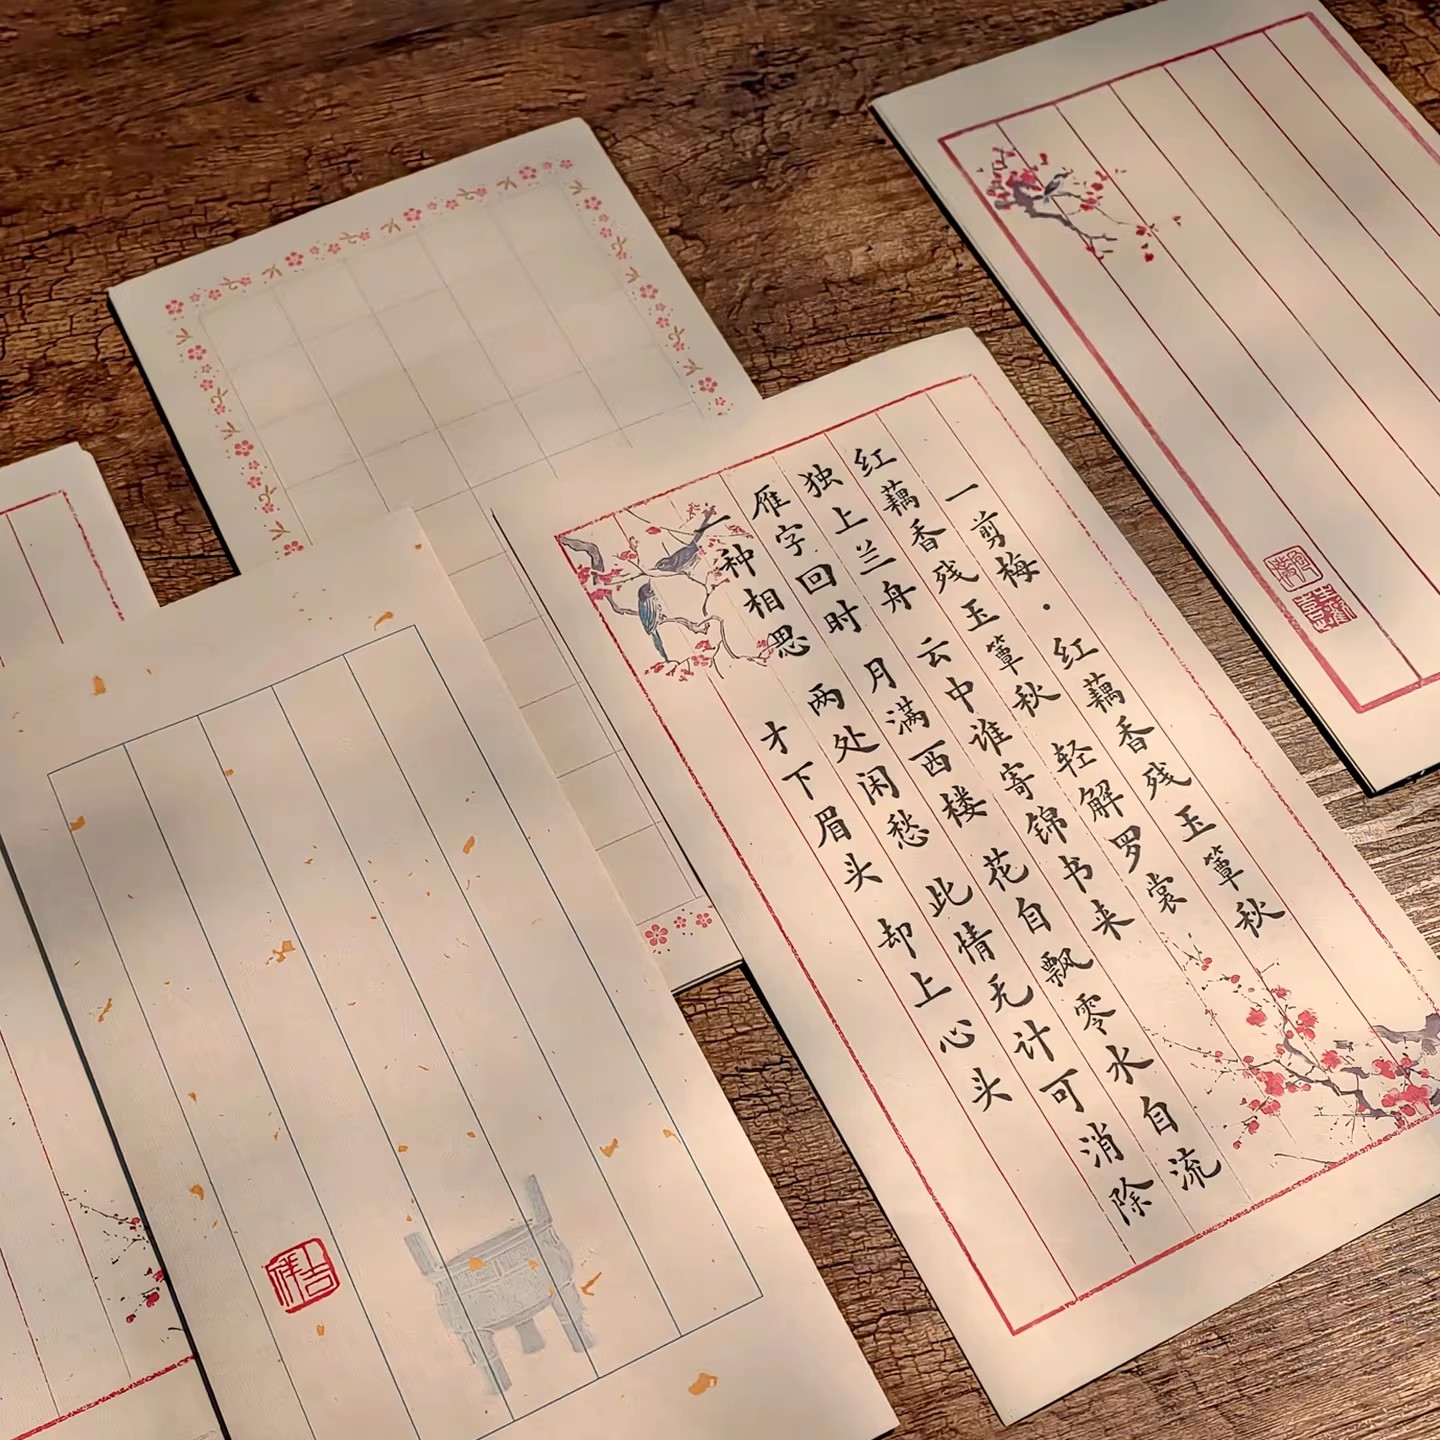 一剪梅·红藕香残玉簟秋
红藕香残玉簟秋 轻解罗裳
独上兰舟 云中谁寄锦书来
雁字回时 月满西楼 花自飘零水自流
一种相思 两处闲愁 此情无计可消除
才下眉头 却上心头
吉祥